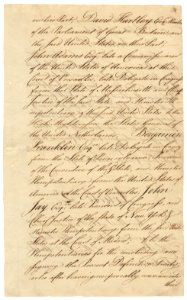 on their Part, David Hartley Esqr., Member
of the Parliament of Great Britain; and
the said United States on their Part,
John Adams Esqr. late a Commissioner
of the United States of America at the
Court of Versailles, late Delegate in Congress
from the State of Massachusetts and Chief
Justice of the said State, and Minister
Plenipotentiary of the said United States to
their High Mightinesses the States General of
the United Netherlands; Benjamin
Franklin Esqr. late Delegate in Congress
from the State of Pennsylvania, President
of the Convention of the sd State, & Minister
Plenipotentiary from the United States of
America at the Court of Versailles; John
Jay Esqr. late President of Congress, and
Chief Justice of the State of New York &
Minister Plenipotentiary from the said United
States at the Court of Madrid; to be the
Plenipotentiaries for the concluding and
signing the Present Definitive Treaty;
who after having reciprocally communicated
their